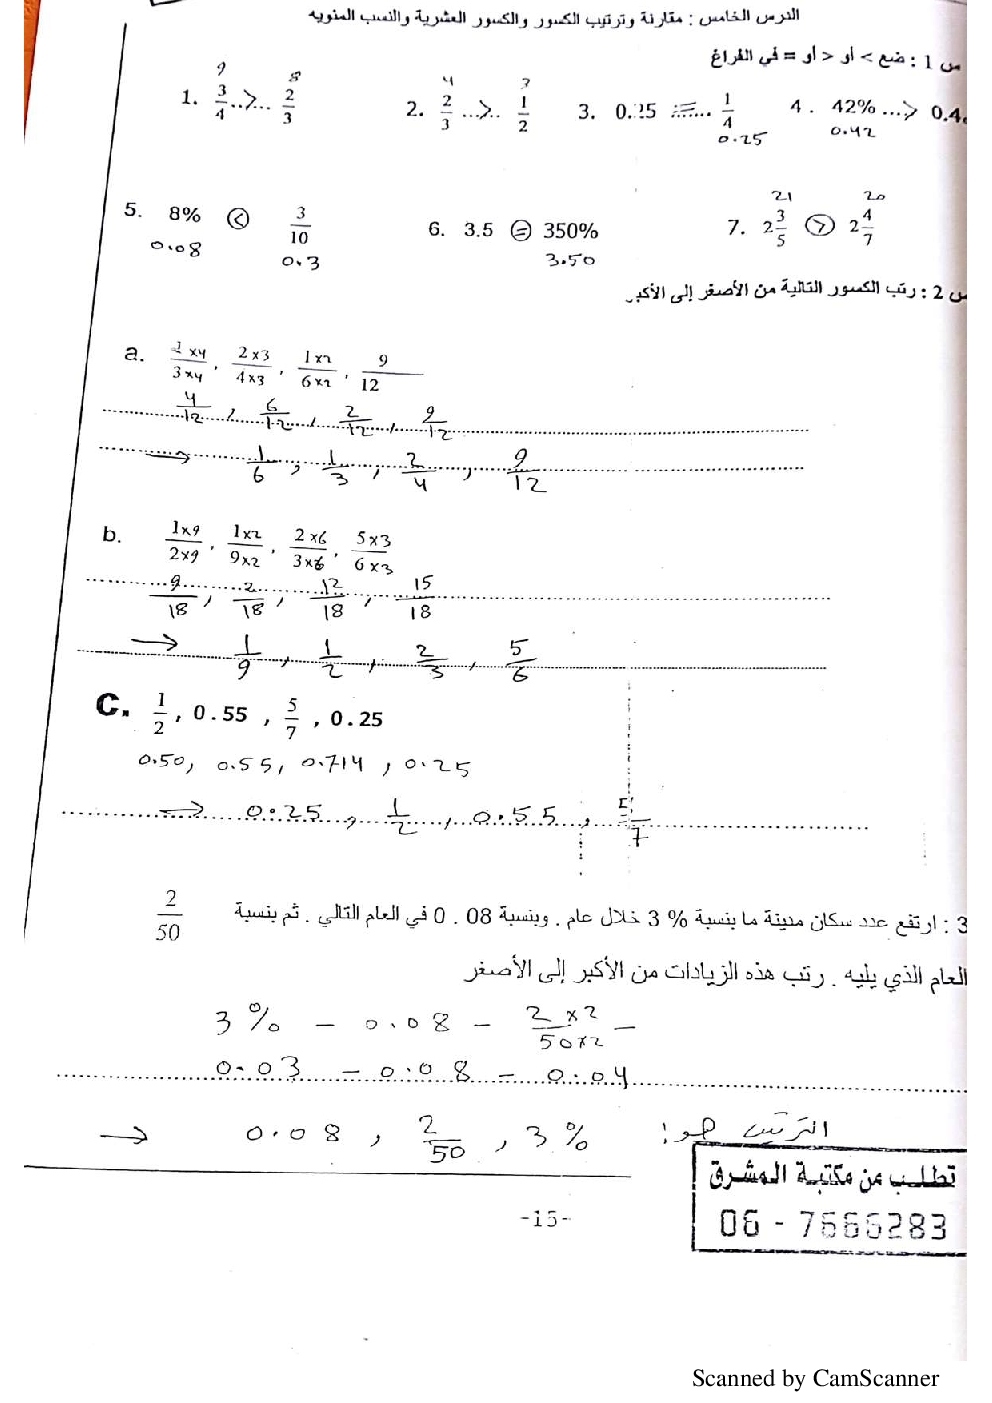 الدرس الخامس : مقارنة وترتيب الكسور والكسور العشرية والنسب المئويه
س 1 : ضع > أو < أو = في الفراغ
9 8
1. 3/4 ..>... 2/3
4 3
2. 2/3 ...>.. 1/2
3. 0.25 ..=... 1/4
0.25
4 . 42% ...> 0.4
0.42
5. 8% < 3/10
0.08 0.3
6. 3.5 = 350%
3.50
21 20
7. 2 3/5 > 2 4/7
س 2 : رتب الكسور التالية من الأصغر إلى الأكبر
a. 1×4/3×4 , 2×3/4×3 , 1×2/6×2 , 9/12
4/12 , 6/12 , 2/12 , 9/12
→ 1/6 , 1/3 , 2/4 , 9/12
b. 1×9/2×9 , 1×2/9×2 , 2×6/3×6 , 5×3/6×3
9/18 , 2/18 , 12/18 , 15/18
→ 1/9 , 1/2 , 2/3 , 5/6
C. 1/2 , 0.55 , 5/7 , 0.25
0.50, 0.55, 0.714 , 0.25
→ 0.25 , 1/2 , 0.55 , 5/7
3 : ارتفع عدد سكان مدينة ما بنسبة % 3 خلال عام . وبنسبة 0 . 08 في العام التالي . ثم بنسبة 2/50
العام الذي يليه . رتب هذه الزيادات من الأكبر إلى الأصغر
3% – 0.08 – 2×2/50×2 –
0.03 – 0.08 – 0.04
الترتيب هو:
→ 0.08 , 2/50 , 3%
تطلب من مكتبة المشرق
06 - 7666283
-15-
Scanned by CamScanner